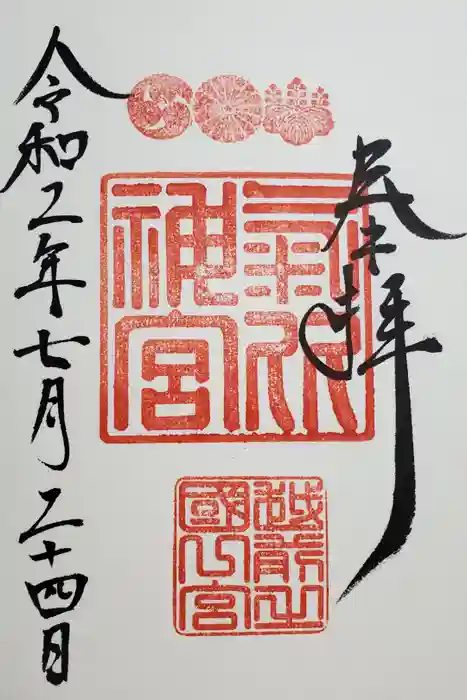 奉拝
氣比
神宮
越前之
國一宮
令和二年七月二十四日